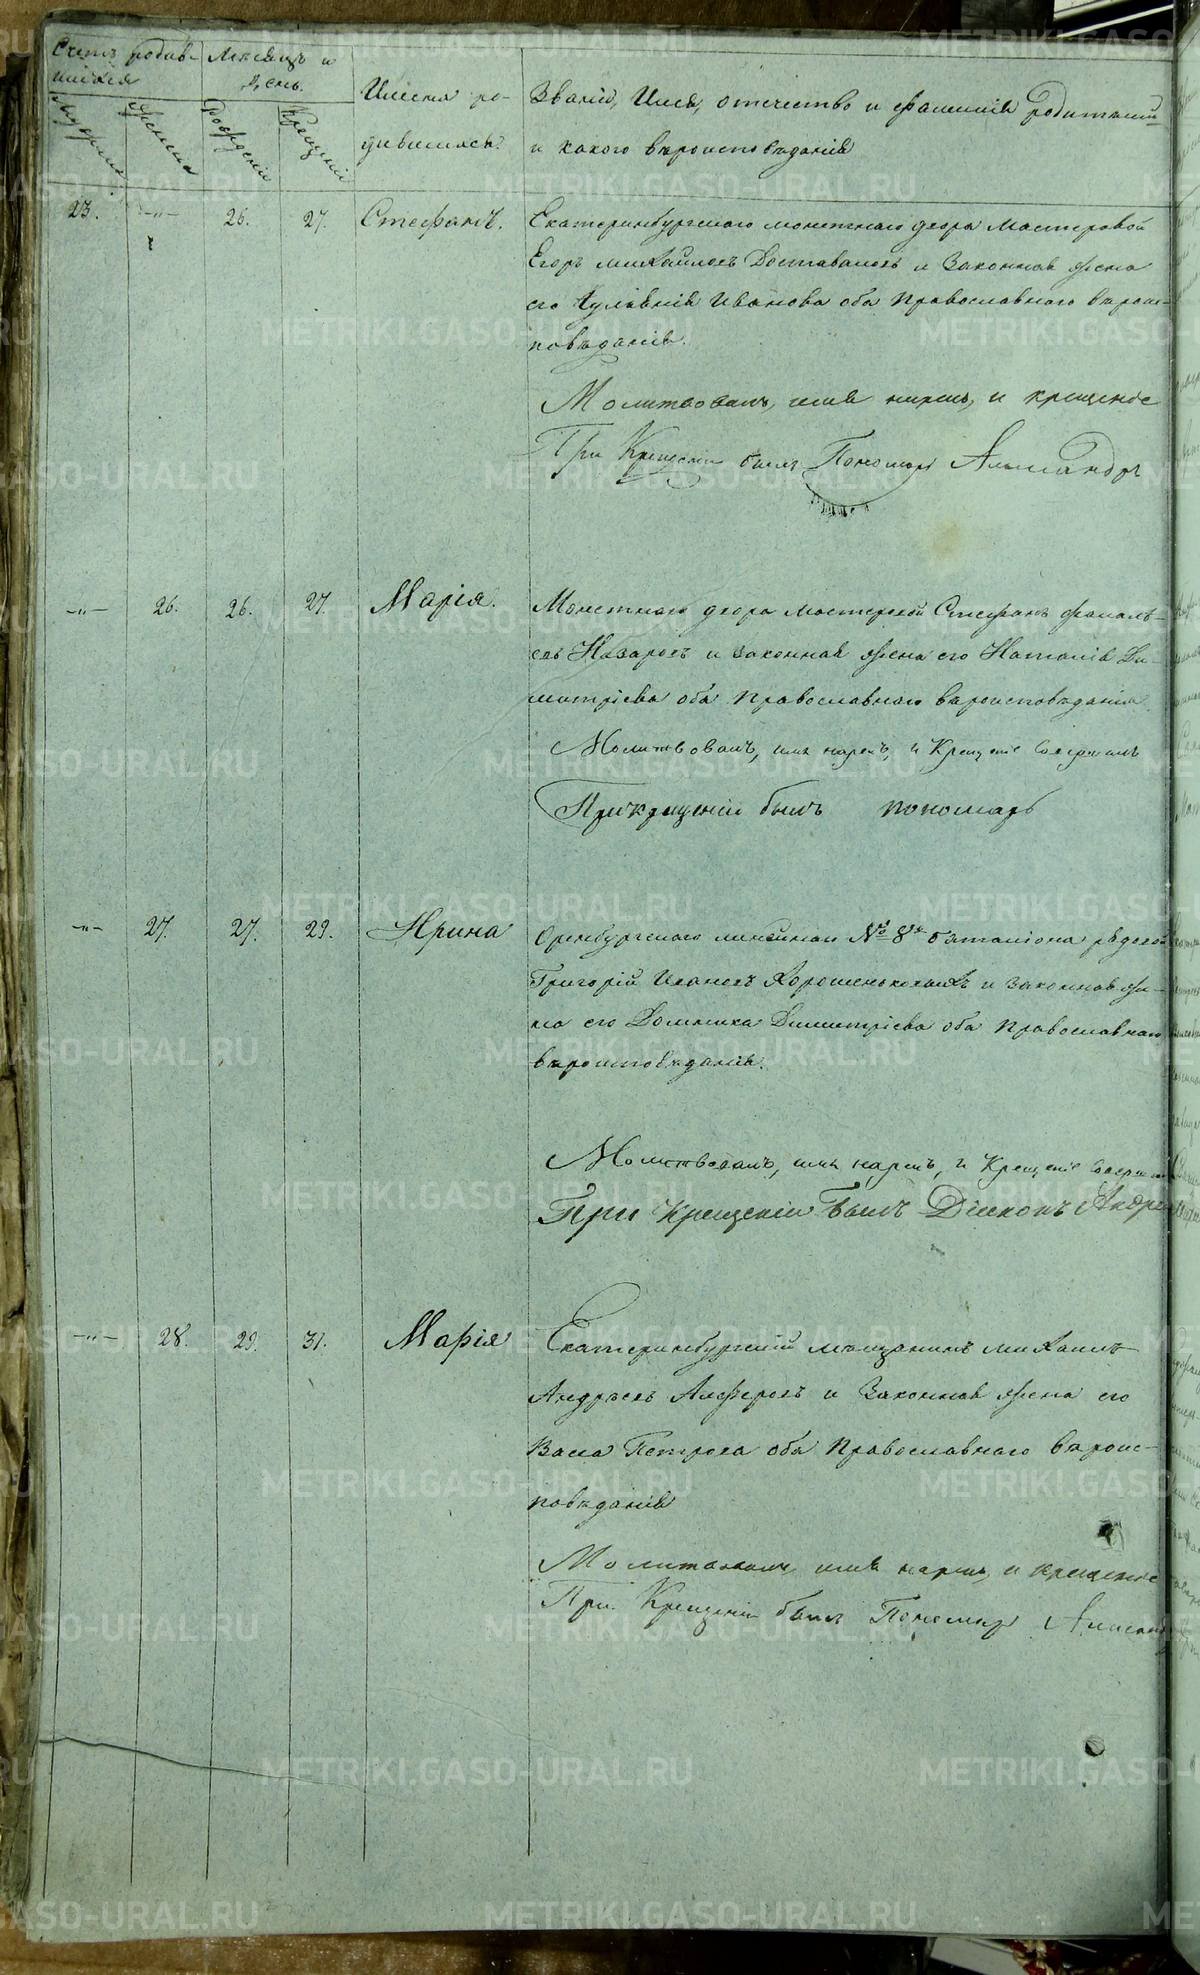 Счетъ родив-
шихся
Мѣсяцъ и
день.
Мужеска
Женска
Рожденія
Крещенія
Имена ро-
дившихся.
Званіе, Имя, отечество и фамилія родителей
и какого вѣроисповѣданія
23. —"— 26. 27. Стефанъ.
Екатеринбургскаго монетнаго двора мастеровой
Егоръ Михайловъ и Законная жена
его Иванова оба Православнаго вѣроис-
повѣданія.
Молитвовалъ, имя нарекъ, и крещеніе
При Крещеніи былъ Пономарь Александръ
—"— 26. 26. 27. Марія.
Монетнаго двора мастеровой Стефанъ
Назаровъ и законная жена его Наталія Ди-
митріева оба Православнаго вѣроисповѣданія.
Молитвовалъ, имя нарекъ, и Крещеніе совершалъ
При крещеніи былъ пономарь
—"— 27. 27. 29. Ирина
Оренбургскаго линейнаго № 8го баталіона рядовой
Григорій Ивановъ и законная же-
на его Домника Димитріева оба Православнаго
вѣроисповѣданія.
Молитвовалъ, имя нарекъ, и Крещеніе
При Крещеніи былъ Діаконъ Андрей
—"— 28. 29. 31. Марія
Екатеринбургскій мѣщанинъ Михаилъ
Андрѣевъ Алферовъ и Законная жена его
Васса Петрова оба Православнаго вѣроис-
повѣданія
Молитвовалъ, имя нарекъ, и крещеніе
При Крещеніи былъ Пономарь
METRIKI.GASO-URAL.RU